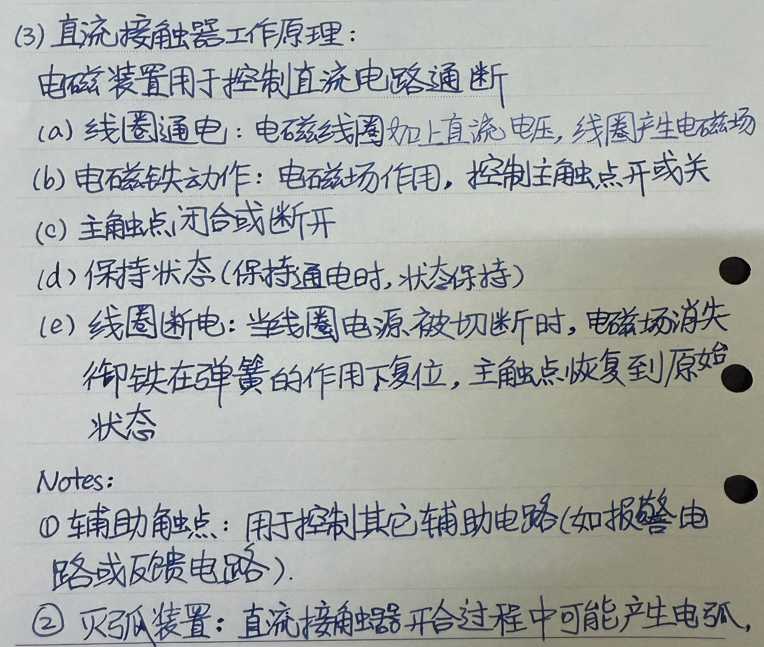 (3) 直流接触器工作原理：
电磁装置用于控制直流电路通断
(a) 线圈通电：电磁线圈加上直流电压，线圈产生电磁场
(b) 电磁铁动作：电磁场作用，控制主触点开或关
(c) 主触点闭合或断开
(d) 保持状态(保持通电时，状态保持)
(e) 线圈断电：当线圈电源被切断时，电磁场消失
衔铁在弹簧的作用下复位，主触点恢复到原始
状态
Notes：
① 辅助触点：用于控制其它辅助电路(如报警电
路或反馈电路).
② 灭弧装置：直流接触器开合过程中可能产生电弧，